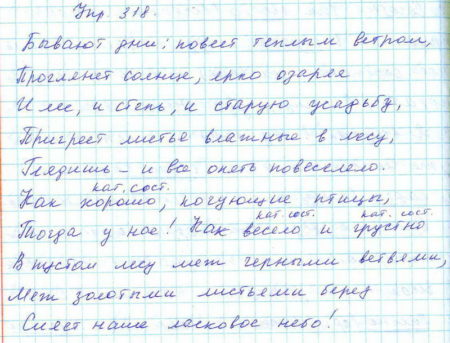 Упр. 318.
Бывают дни: повеет теплым ветром,
Проглянет солнце, ярко озаряя
И лес, и степь, и старую усадьбу,
Пригреет листья влажные в лесу,
Глядишь – и все опять повеселело.
кат. сост.
Как хорошо, кочующие птицы,
кат. сост. кат. сост.
Тогда у нас! Как весело и грустно
В пустом лесу меж черными ветвями,
Меж золотыми листьями берез
Сияет наше ласковое небо!